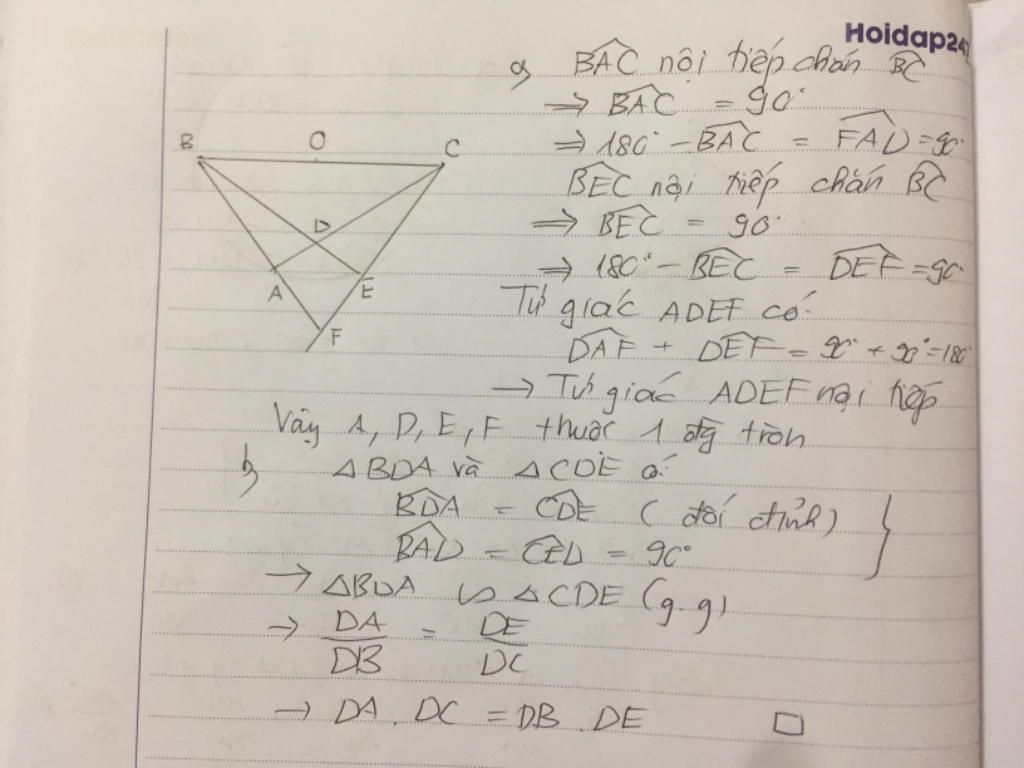 Hoidap247
a) BAC nội tiếp chắn BC
⇒ BAC = 90°
⇒ 180° - BAC = FAD = 90°
BEC nội tiếp chắn BC
⇒ BEC = 90°
⇒ 180° - BEC = DEF = 90°
Tứ giác ADEF có
DAF + DEF = 90° + 90° = 180°
→ Tứ giác ADEF nội tiếp
Vậy A, D, E, F thuộc 1 đg tròn
B O C
D
A E
F
b) △BDA và △CDE có
BDA = CDE (đối đỉnh) }
BAD = CED = 90°
→ △BDA ∽ △CDE (g.g)
→ DA/DB = DE/DC
→ DA . DC = DB . DE □